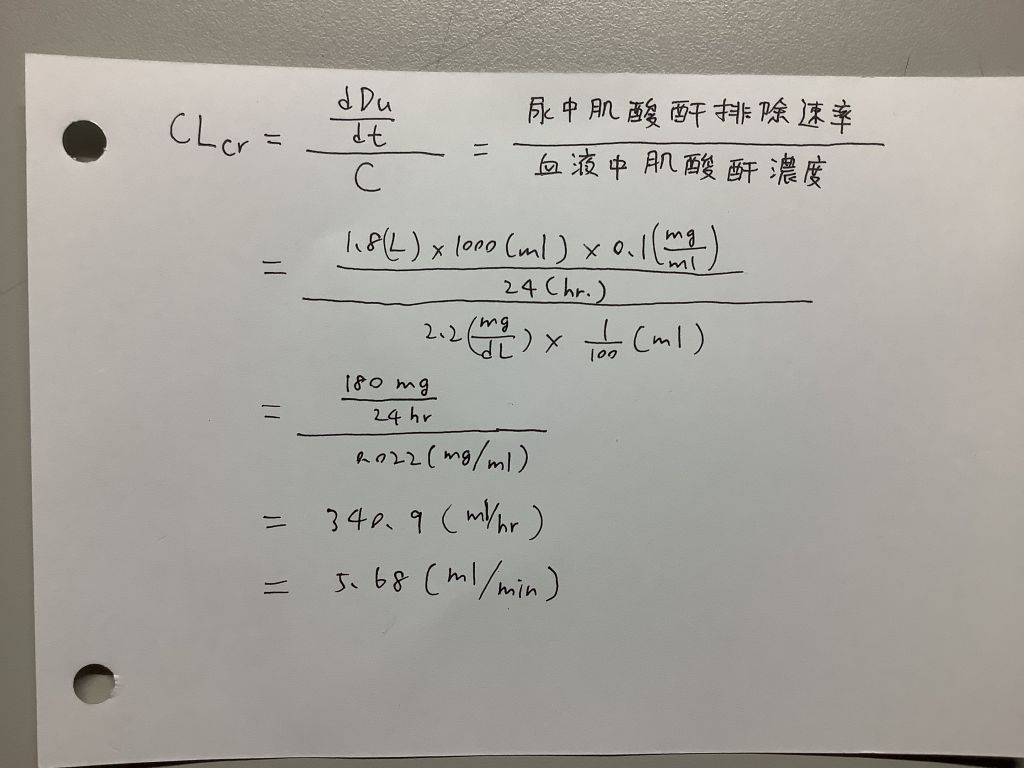 CLcr = dDu/dt / C = 尿中肌酸酐排除速率 / 血液中肌酸酐濃度
= 1.8(L) × 1000(ml) × 0.1(mg/ml) / 24(hr.) / 2.2(mg/dL) × 1/100 (ml)
= 180 mg / 24 hr / 0.022(mg/ml)
= 340.9 (ml/hr)
= 5.68 (ml/min)